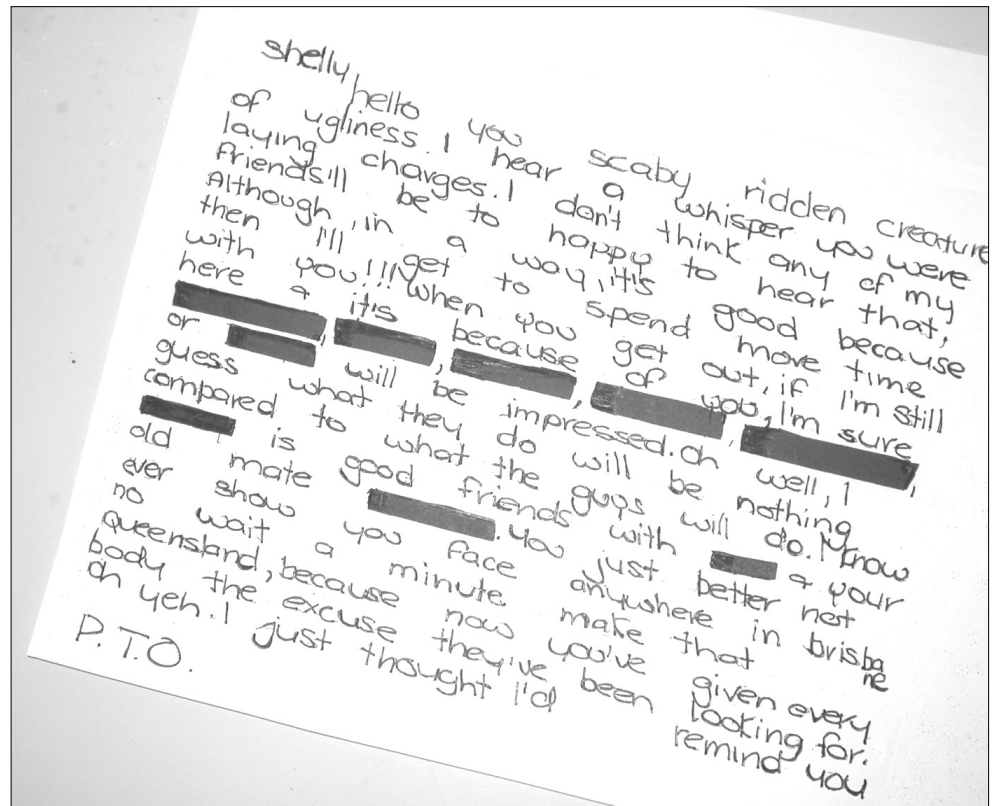 shelly,
hello you scaby ridden creature
of ugliness. I hear a whisper you were
laying charges. I don't think any of my
friends'll be to happy to hear that,
Although, in a way, it's good because
then I'll get to spend more time
with you!!! When you get out, if I'm still
here & it's because of you, I'm sure
, , , , ,
or will be impressed. oh well, I
guess what they do will be nothing
compared to what the guys will do. I know
is good friends with & your
old mate . You just better not
ever show you face anywhere in brisbane
no wait a minute make that
Queensland, because now you've given every
body the excuse they've been looking for.
oh yeh. I just thought I'd remind you
P.T.O.